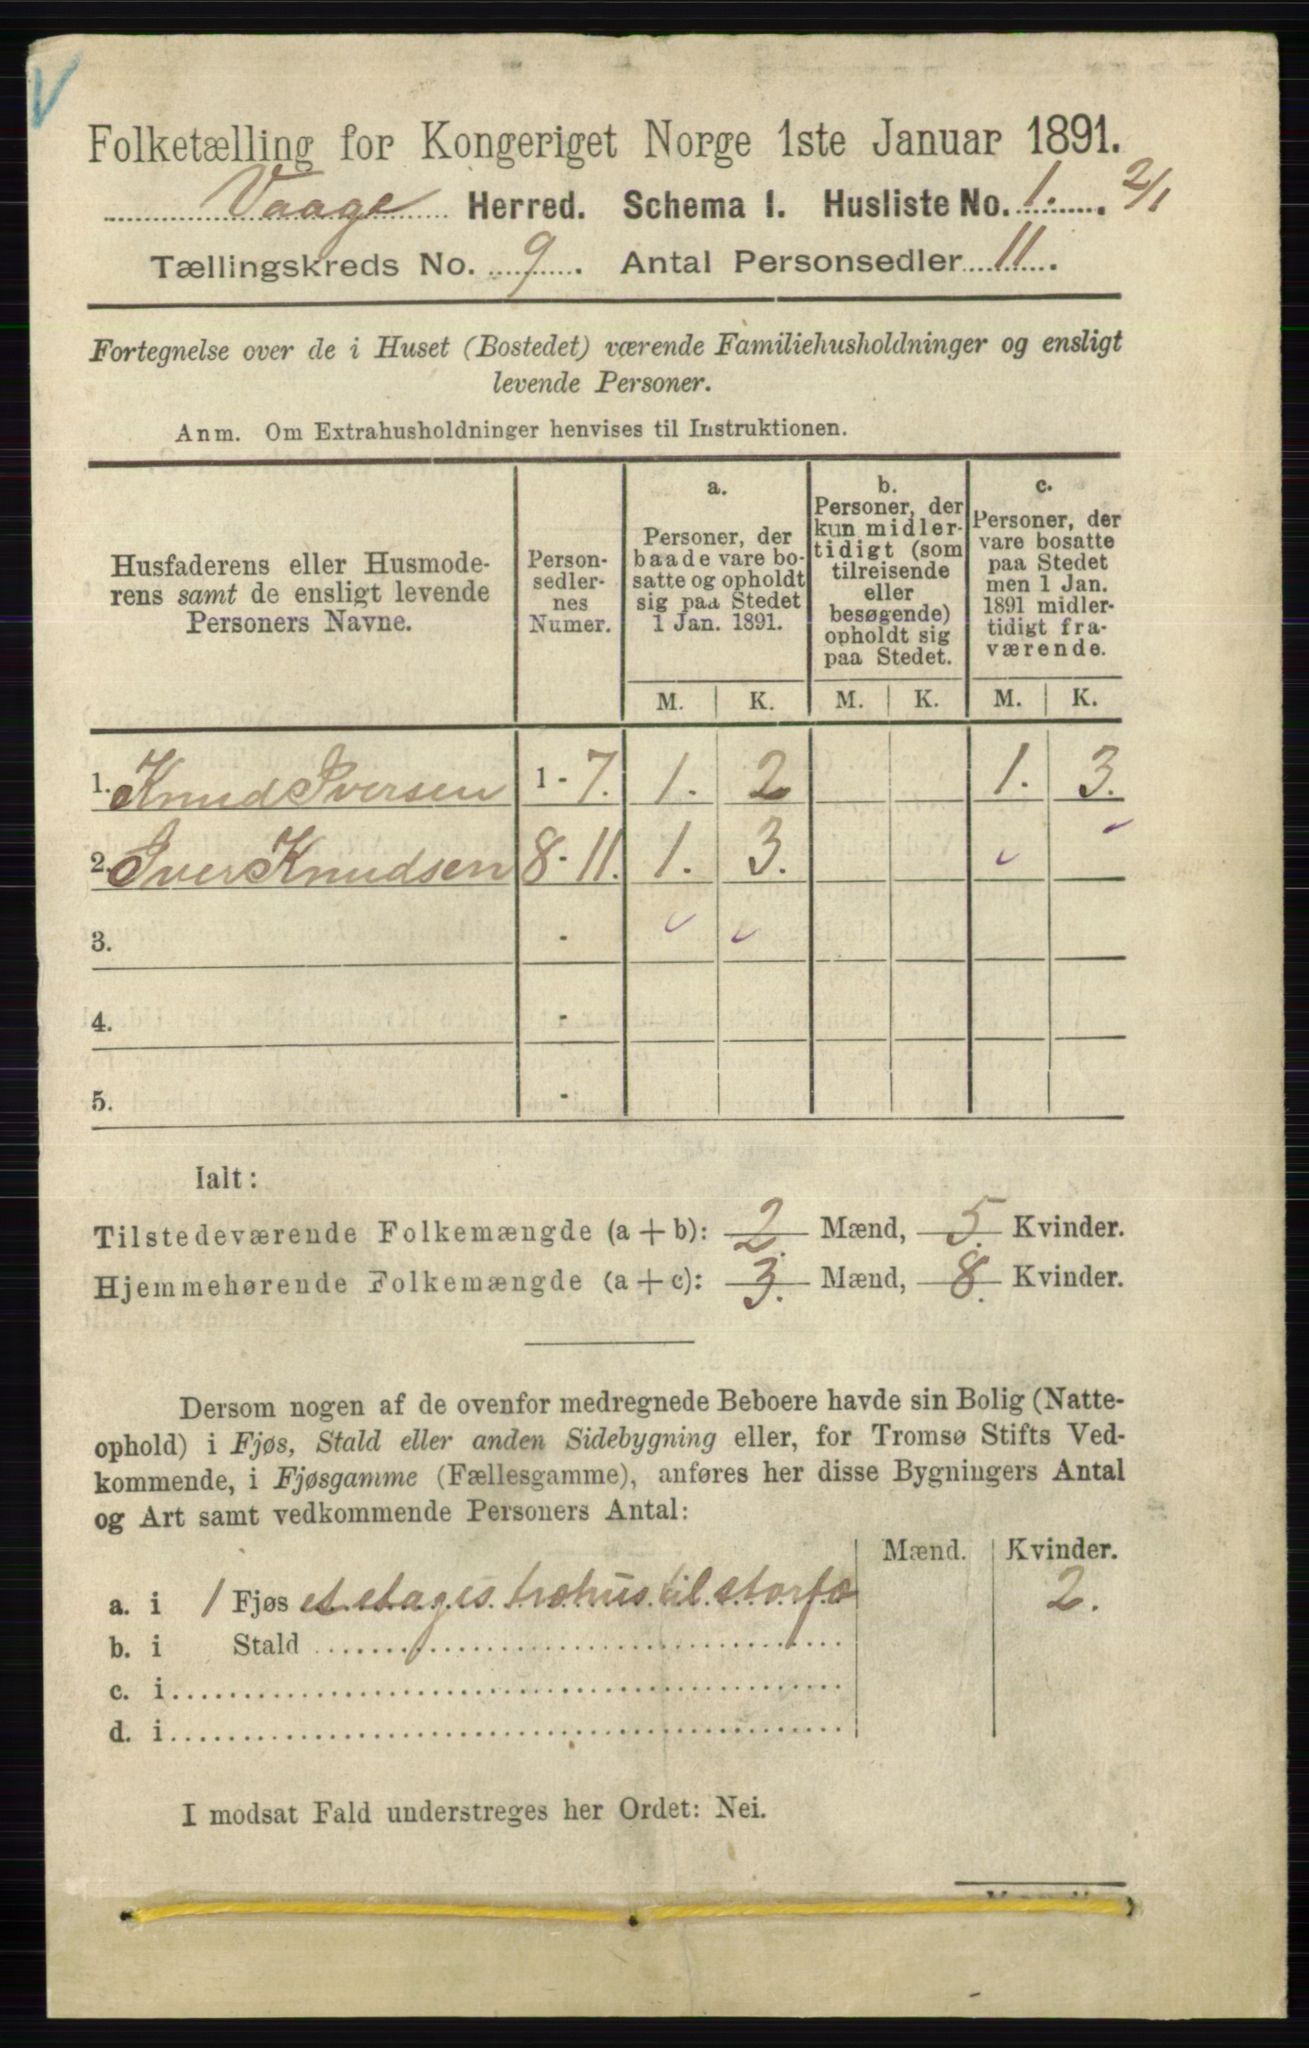 V
Folketælling for Kongeriget Norge 1ste Januar 1891.
Vaage Herred. Schema I. Husliste No. 1. 2/1
Tællingskreds No. 9. Antal Personsedler 11.
Fortegnelse over de i Huset (Bostedet) værende Familiehusholdninger og ensligt
levende Personer.
Anm. Om Extrahusholdninger henvises til Instruktionen.
Husfaderens eller Husmode-
rens samt de ensligt levende
Personers Navne.
Person-
sedler-
nes
Numer.
a.
Personer, der
baade vare bo-
satte og opholdt
sig paa Stedet
1 Jan. 1891.
b.
Personer, der
kun midler-
tidigt (som
tilreisende
eller
besøgende)
opholdt sig
paa Stedet.
c.
Personer, der
vare bosatte
paa Stedet
men 1 Jan.
1891 midler-
tidigt fra-
værende.
M. K. M. K. M. K.
1. Knud Iversen 1 - 7. 1. 2 1. 3.
2. Iver Knudsen 8 - 11. 1. 3.
3. -
4. -
5. -
Ialt:
Tilstedeværende Folkemængde (a + b): 2. Mænd, 5. Kvinder.
Hjemmehørende Folkemængde (a + c): 3. Mænd, 8. Kvinder.
Dersom nogen af de ovenfor medregnede Beboere havde sin Bolig (Natte-
ophold) i Fjøs, Stald eller anden Sidebygning eller, for Tromsø Stifts Ved-
kommende, i Fjøsgamme (Fællesgamme), anføres her disse Bygningers Antal
og Art samt vedkommende Personers Antal:
Mænd. Kvinder.
a. i 1 Fjøs et etages træhus til storfæ 2.
b. i Stald
c. i
d. i
I modsat Fald understreges her Ordet: Nei.